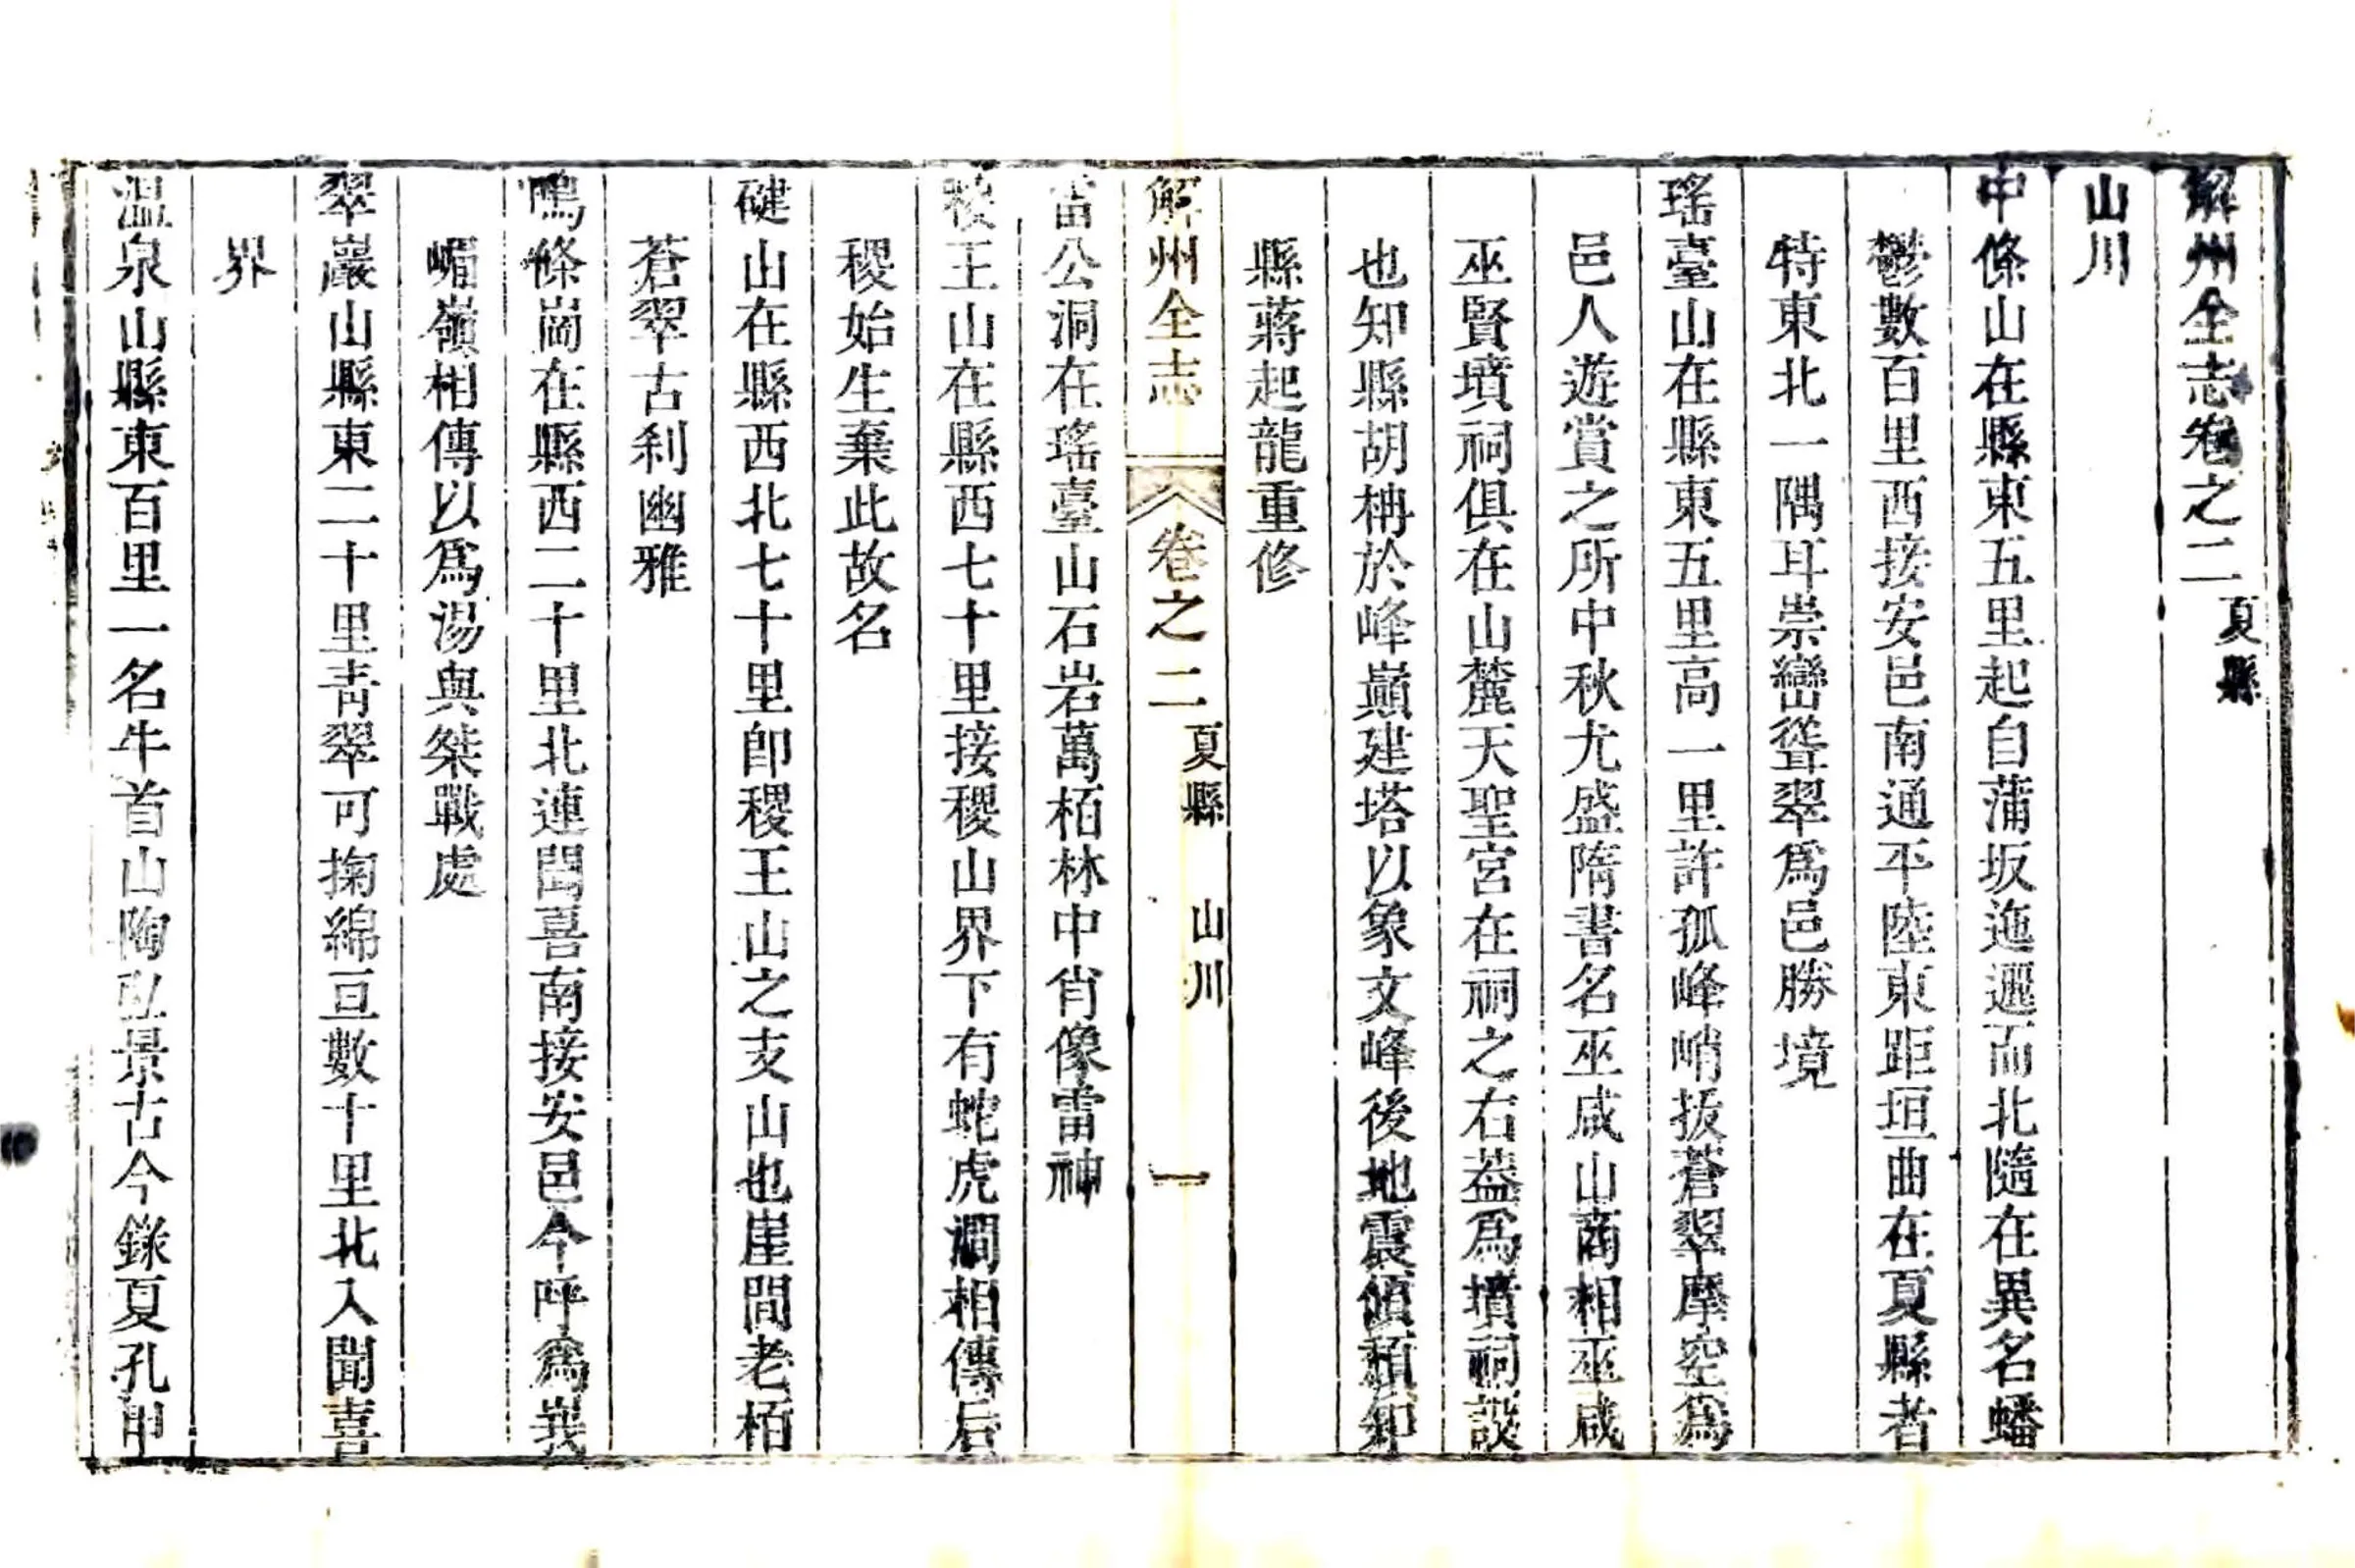 解州全志卷之二夏縣
山川
中條山在縣東五里起自蒲坂迤邐而北隨在異名蟠
鬱數百里西接安邑南通平陸東距垣曲在夏縣者
特東北一隅耳崇巒聳翠爲邑勝境
瑤臺山在縣東五里高一里許孤峰峭拔蒼翠摩空爲
邑人遊賞之所中秋尤盛隋書名巫咸山商相巫咸
巫賢墳祠俱在山麓天聖宮在祠之右葢爲墳祠設
也知縣胡柟於峰巔建塔以象文峰後地震傾頽知
縣蔣起龍重修
解州全志 卷之二夏縣 山川 一
雷公洞在瑤臺山石岩萬栢林中肖像雷神
稷王山在縣西七十里接稷山界下有蛇虎澗相傳后
稷始生棄此故名
䃮山在縣西北七十里卽稷王山之支山也崖間老栢
蒼翠古刹幽雅
鳴條崗在縣西二十里北連聞喜南接安邑今呼爲峩
嵋嶺相傳以爲湯與桀戰處
翠巖山縣東二十里靑翠可掬綿亘數十里北入聞喜
界
温泉山縣東百里一名牛首山陶弘景古今錄夏孔甲